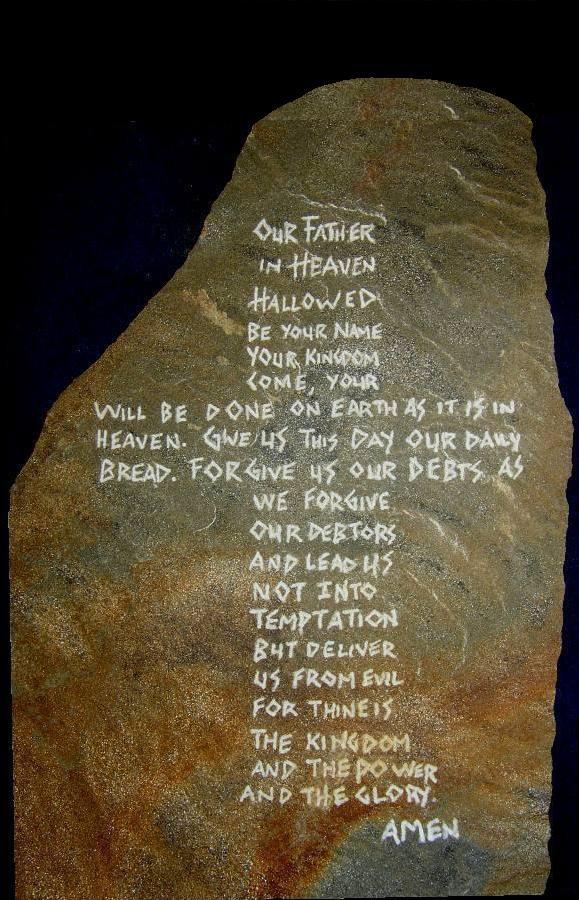 Our Father
in Heaven
Hallowed
Be your Name
Your Kingdom
Come, your
Will be done on Earth as it is in
Heaven. Give us This Day Our Daily
Bread. Forgive us our Debts as
we forgive
our debtors
and lead us
not into
temptation
But deliver
us from evil
for thine is
the kingdom
and the power
and the glory.
Amen